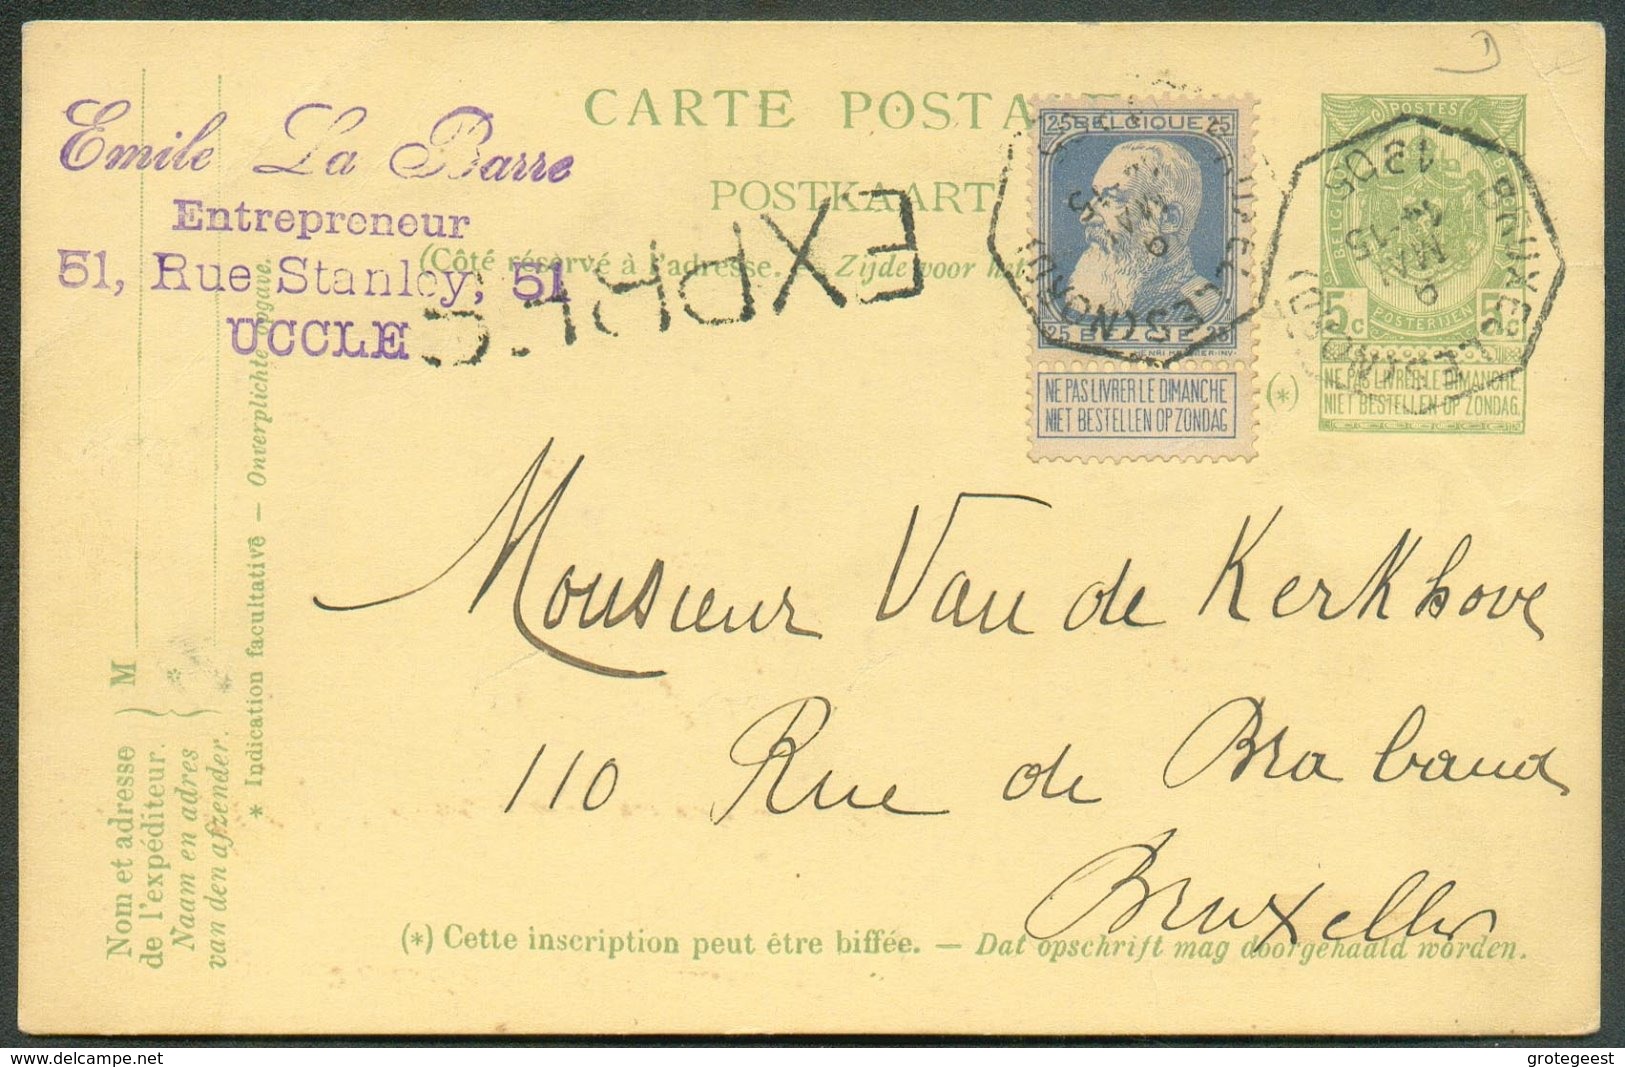 CARTE POSTA
POSTKAART
(Côté réservé à l'adresse. — Zijde voor het
Emile La Barre
Entrepreneur
51, Rue Stanley, 51
UCCLE
EXPRES
25 BELGIQUE 25
25 BELGIË 25
NE PAS LIVRER LE DIMANCHE
NIET BESTELLEN OP ZONDAG
POSTES
BELGIQUE
5c 5c
POSTERIJEN
(*)
NE PAS LIVRER LE DIMANCHE
NIET BESTELLEN OP ZONDAG.
Monsieur Van de Kerkhove
110 Rue de Braband
Bruxelles
(*) Cette inscription peut être biffée. — Dat opschrift mag doorgehaald worden.
M
Nom et adresse
de l'expéditeur.
Naam en adres
van den afzender.
*
* Indication facultative — Onverplichte opgave.
delcampe.net
grotegeest